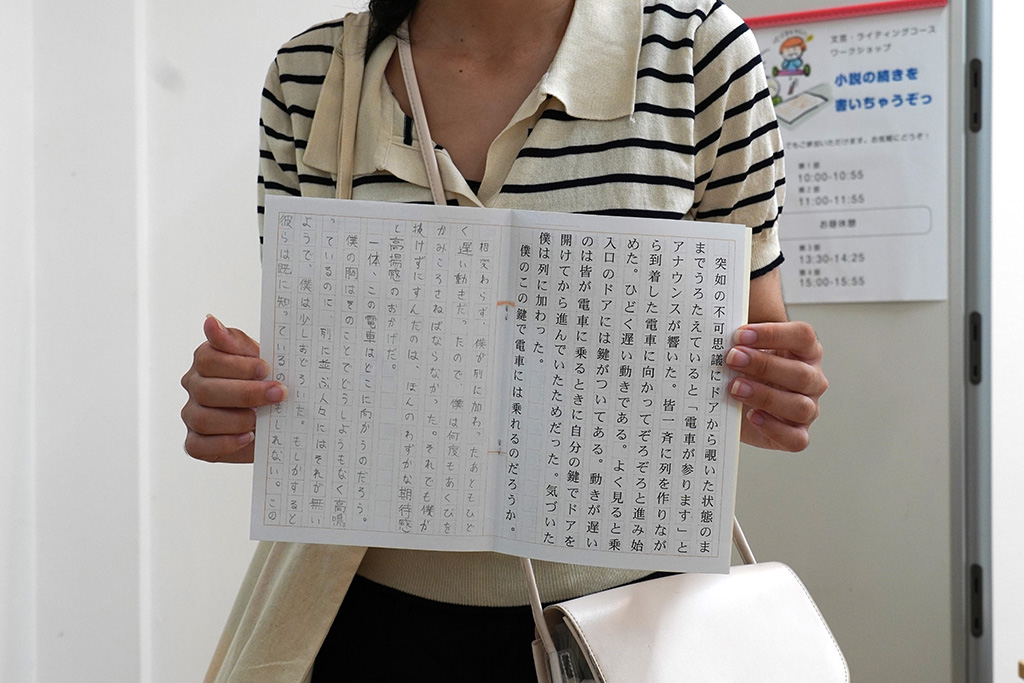 文芸・ライティングコース
ワークショップ
小説の続きを
書いちゃうぞっ
でもご参加いただけます。お気軽にどうぞ!
第1部
10:00-10:55
第2部
11:00-11:55
お昼休憩
第3部
13:30-14:25
第4部
15:00-15:55
突如の不可思議にドアから覗いた状態のま
までうろたえていると「電車が参ります」と
アナウンスが響いた。皆一斉に列を作りなが
ら到着した電車に向かってぞろぞろと進み始
めた。ひどく遅い動きである。よく見ると乗
入口のドアには鍵がついてある。動きが遅い
のは皆が電車に乗るときに自分の鍵でドアを
開けてから進んでいたためだった。気づいた
僕は列に加わった。
僕のこの鍵で電車には乗れるのだろうか。
相変わらず、僕が列に加わったあともひど
く遅い動きだったので、僕は何度もあくびを
かみころさねばならなかった。それでも僕が
抜けずにすんだのは、ほんのわずかな期待感
と高揚感のおかげだ。
一体、この電車はどこに向かうのだろう。
僕の胸はそのことでどうしようもなく高鳴
っているのに、列に並ぶ人々にはそれが無い
ようで、僕は少しおどろいた。もしかすると
彼らは既に知っているのかもしれない。この